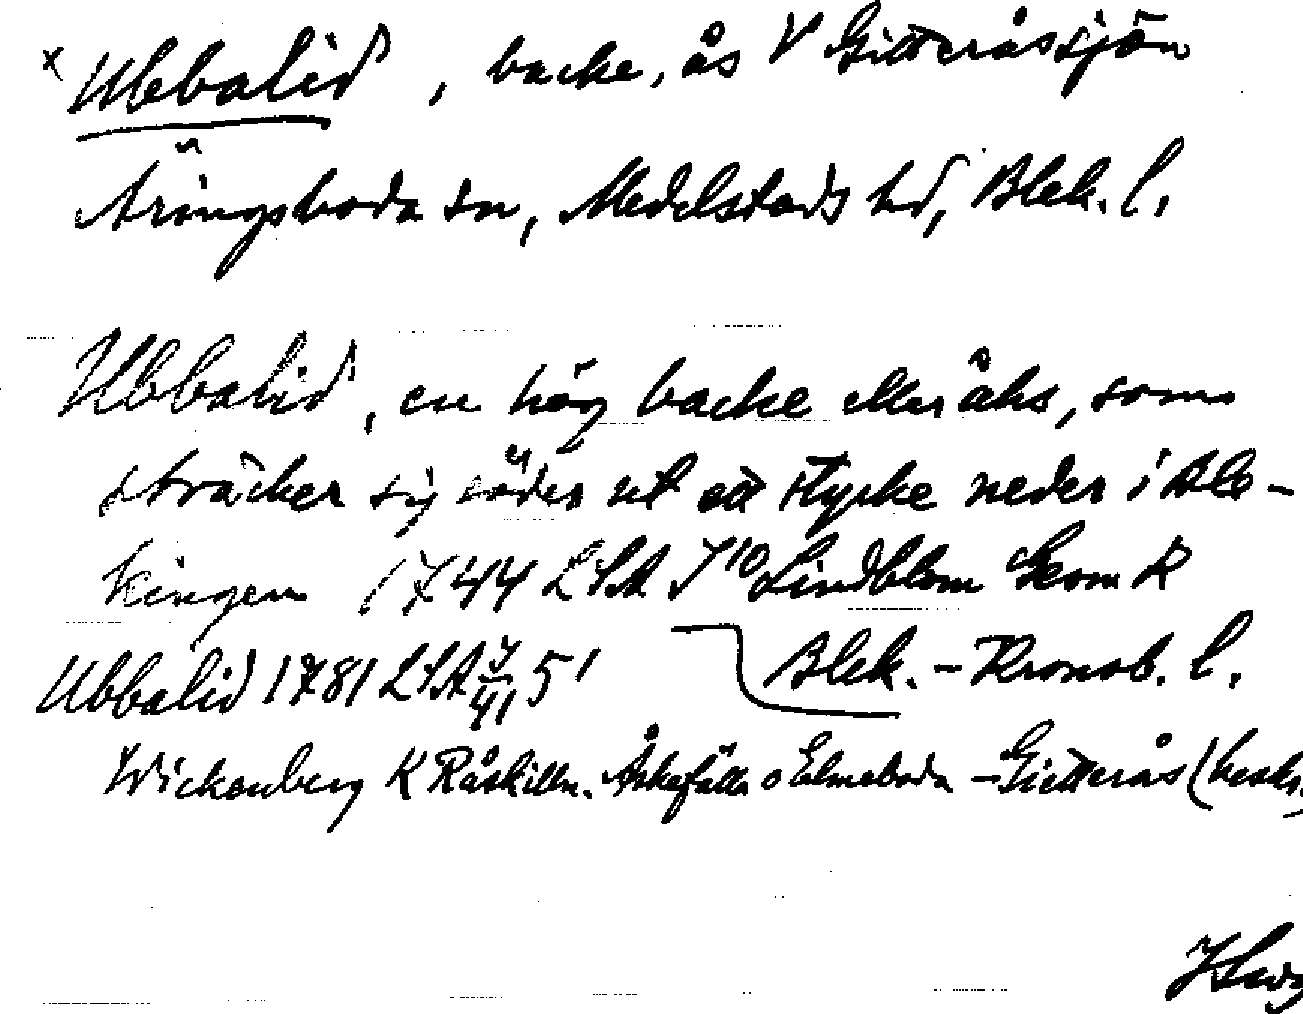 x Ubbalid, backe, ås V Gitteråssjön
Åringsboda sn, Medelstads hd, Blek. l.
Ubbalid, en hög backe eller åhs, som
sträcker sig söder ut ett stycke neder i Ble-
kingen 1744 LSA J10 Lindblom Geom K
Ubbalid 1781 LSA J/41 51 Blek. - Kronob. l.
Wickenberg K Råskilln. Älmeboda - Gitterås (beskr.